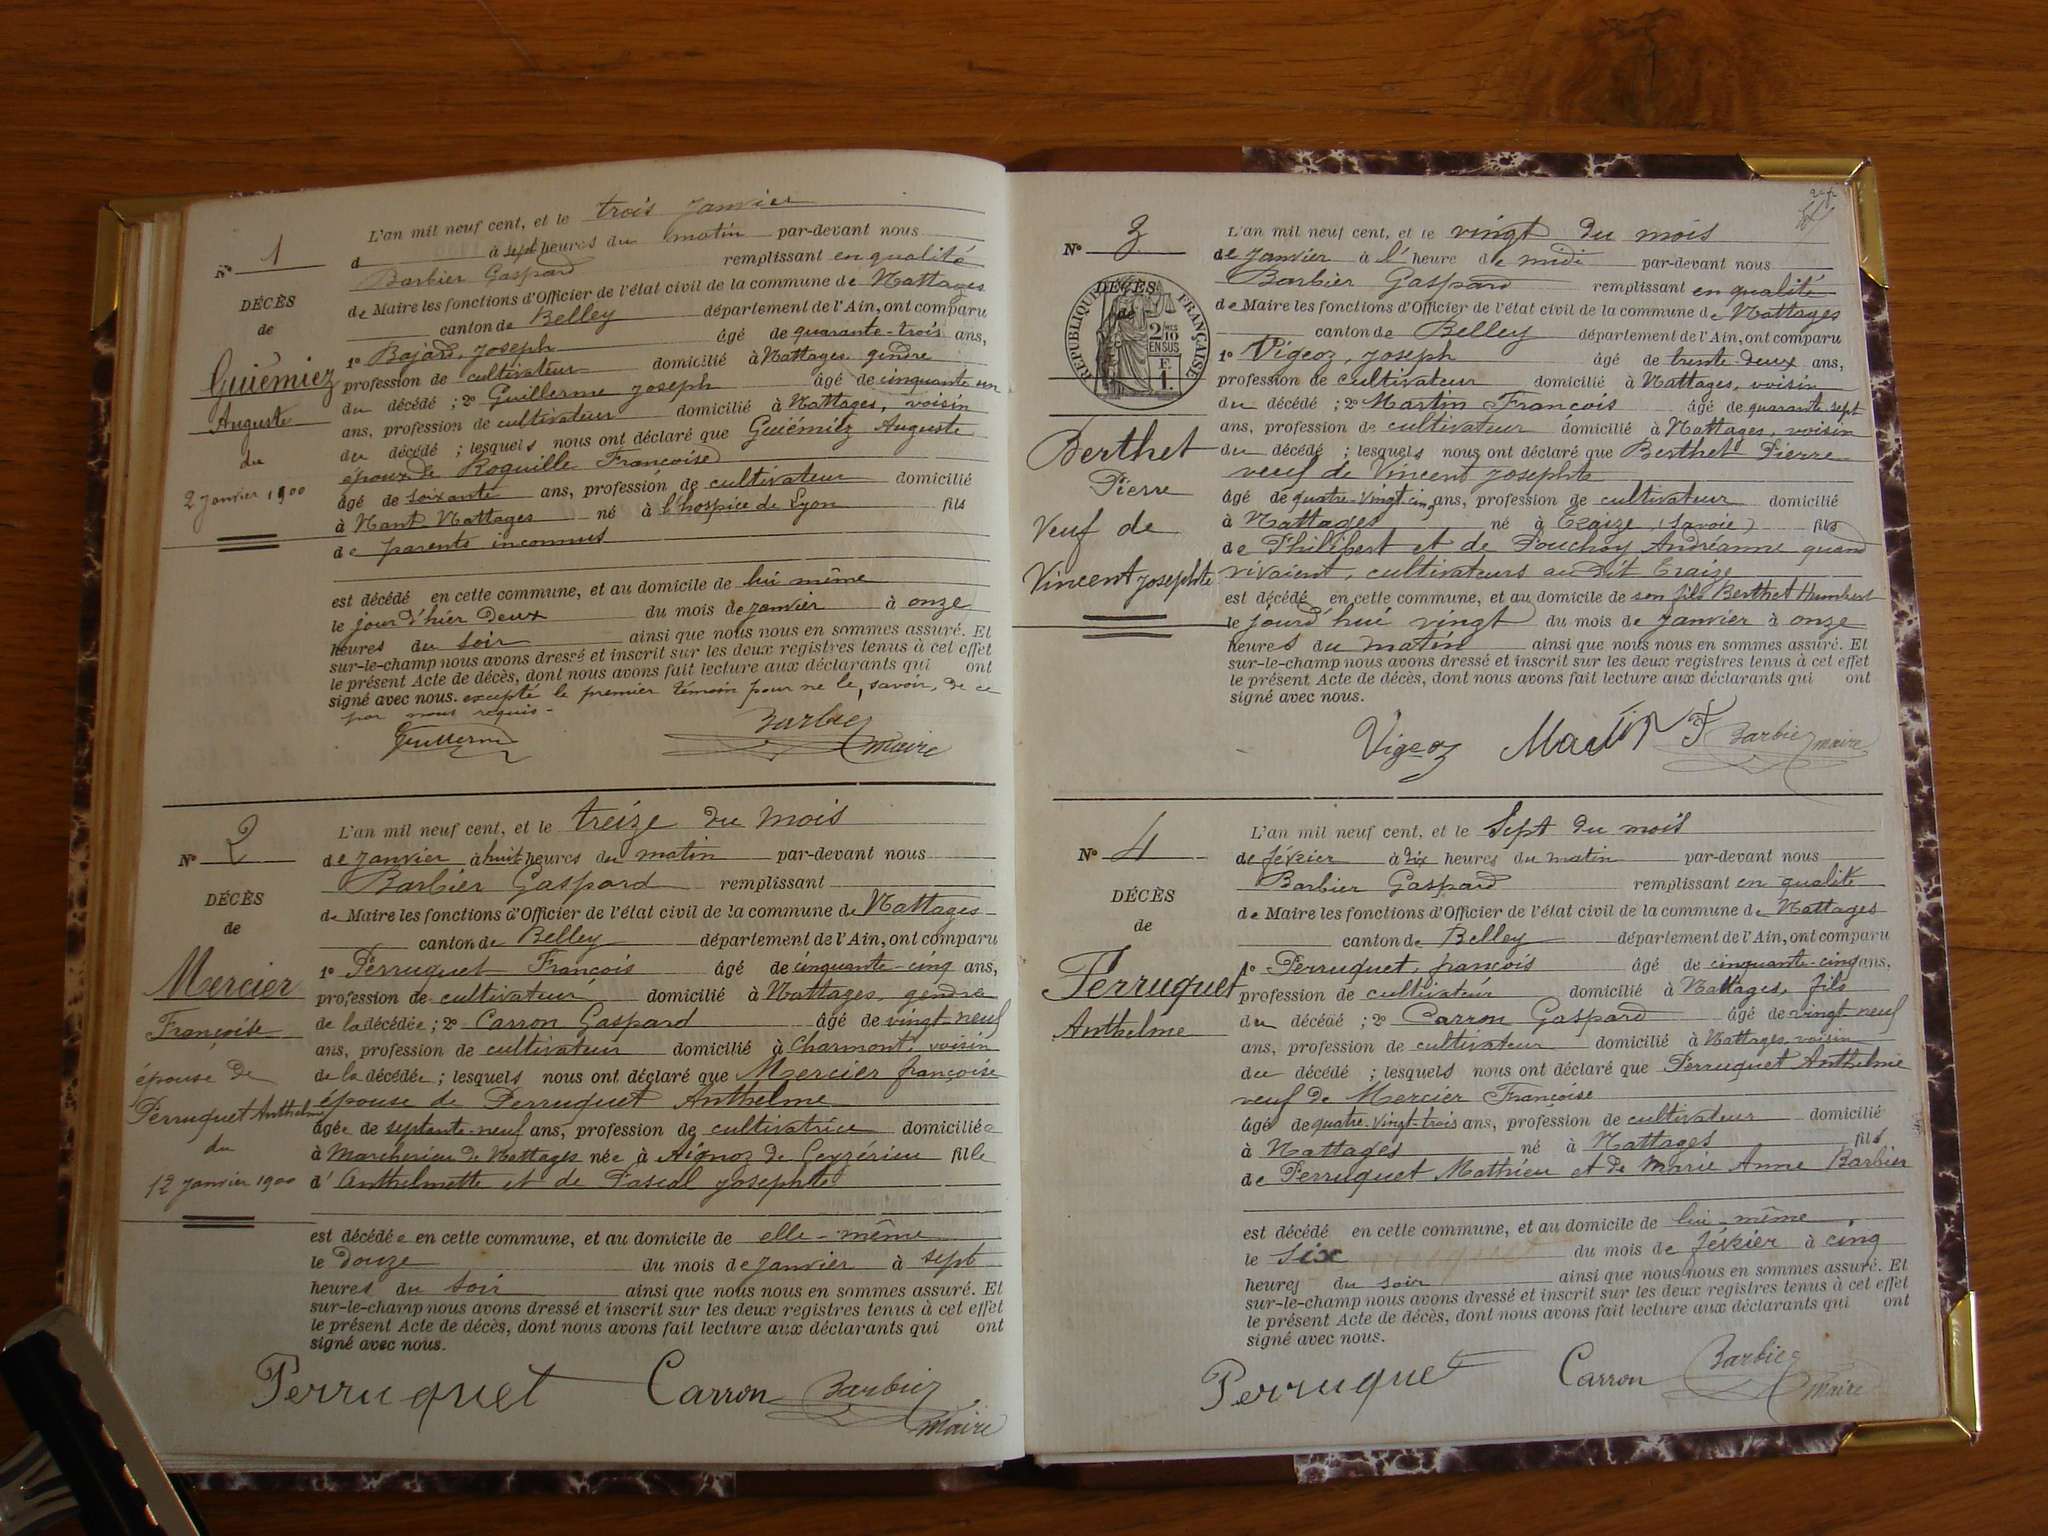 N° 1
DÉCÈS
de
Guiémiez
Auguste
du
2 janvier 1900
L'an mil neuf cent, et le trois janvier
d à sept heures du matin par-devant nous
Barbier Gaspard remplissant en qualité
de Maire les fonctions d'Officier de l'état civil de la commune de Nattages
canton de Belley département de l'Ain, ont comparu
1° Bajard, Joseph âgé de quarante-trois ans,
profession de cultivateur domicilié à Nattages gendre
du décédé ; 2° Guillerme Joseph âgé de cinquante un
ans, profession de cultivateur domicilié à Nattages, voisin
du décédé ; lesquels nous ont déclaré que Guiémiez Auguste
époux de Roquille Françoise
âgé de soixante ans, profession de cultivateur domicilié
à Nant Nattages né à l'hospice de Lyon fils
de parents inconnus
est décédé en cette commune, et au domicile de lui même
le jour d'hier deux du mois de janvier à onze
heures du soir ainsi que nous nous en sommes assuré. Et
sur-le-champ nous avons dressé et inscrit sur les deux registres tenus à cet effet
le présent Acte de décès, dont nous avons fait lecture aux déclarants qui ont
signé avec nous. excepté le premier témoin pour ne le savoir, de ce
par nous requis -
Guillerme Barbier maire
N° 2
DÉCÈS
de
Mercier
Françoise
épouse de
Perruquet Anthelme
du
12 janvier 1900
L'an mil neuf cent, et le treize du mois
de janvier à huit heures du matin par-devant nous
Barbier Gaspard remplissant
de Maire les fonctions d'Officier de l'état civil de la commune de Nattages
canton de Belley département de l'Ain, ont comparu
1° Perruquet François âgé de cinquante-cinq ans,
profession de cultivateur domicilié à Nattages, gendre
de la décédée ; 2° Carron Gaspard âgé de vingt-neuf
ans, profession de cultivateur domicilié à Charmont, voisin
de la décédée ; lesquels nous ont déclaré que Mercier françoise
épouse de Perruquet Anthelme
âgée de septante-neuf ans, profession de cultivatrice domiciliée
à Marcherieu de Nattages née à Aignoz de Ceyzérieu fille
d'Anthelmette et de Pascal Josephte
est décédée en cette commune, et au domicile de elle-même
le douze du mois de janvier à sept
heures du soir ainsi que nous nous en sommes assuré. Et
sur-le-champ nous avons dressé et inscrit sur les deux registres tenus à cet effet
le présent Acte de décès, dont nous avons fait lecture aux déclarants qui ont
signé avec nous.
Perruquet Carron Barbier Maire
N° 3
DÉCÈS
de
RÉPUBLIQUE FRANÇAISE
2/10 EN SUS
F. 1.
Berthet
Pierre
Veuf de
Vincent Josephte
L'an mil neuf cent, et le vingt du mois
de janvier à l'heure de midi par-devant nous
Barbier Gaspard remplissant en qualité
de Maire les fonctions d'Officier de l'état civil de la commune de Nattages
canton de Belley département de l'Ain, ont comparu
1° Vigeoz, Joseph âgé de trente deux ans,
profession de cultivateur domicilié à Nattages, voisin
du décédé ; 2° Martin François âgé de quarante sept
ans, profession de cultivateur domicilié à Nattages, voisin
du décédé ; lesquels nous ont déclaré que Berthet Pierre
veuf de Vincent Josephte
âgé de quatre-vingt-cinq ans, profession de cultivateur domicilié
à Nattages né à Traize (Savoie) fils
de Philibert et de Pouchoy Andréanne quand
vivaient, cultivateurs au dit Traize
est décédé en cette commune, et au domicile de son fils Berthet Humbert
le jourd'hui vingt du mois de janvier à onze
heures du matin ainsi que nous nous en sommes assuré. Et
sur-le-champ nous avons dressé et inscrit sur les deux registres tenus à cet effet
le présent Acte de décès, dont nous avons fait lecture aux déclarants qui ont
signé avec nous.
Vigeoz Martin F Barbier maire
N° 4
DÉCÈS
de
Perruquet
Anthelme
L'an mil neuf cent, et le Sept du mois
de février à dix heures du matin par-devant nous
Barbier Gaspard remplissant en qualité
de Maire les fonctions d'Officier de l'état civil de la commune de Nattages
canton de Belley département de l'Ain, ont comparu
1° Perruquet, françois âgé de cinquante-cinq ans,
profession de cultivateur domicilié à Nattages, fils
du décédé ; 2° Carron Gaspard âgé de vingt neuf
ans, profession de cultivateur domicilié à Nattages, voisin
du décédé ; lesquels nous ont déclaré que Perruquet Anthelme
veuf de Mercier Françoise
âgé de quatre-vingt-trois ans, profession de cultivateur domicilié
à Nattages né à Nattages fils
de Perruquet Mathieu et de Marie Anne Barbier
est décédé en cette commune, et au domicile de lui-même
le six du mois de février à cinq
heures du soir ainsi que nous nous en sommes assuré. Et
sur-le-champ nous avons dressé et inscrit sur les deux registres tenus à cet effet
le présent Acte de décès, dont nous avons fait lecture aux déclarants qui ont
signé avec nous.
Perruquet Carron Barbier Maire